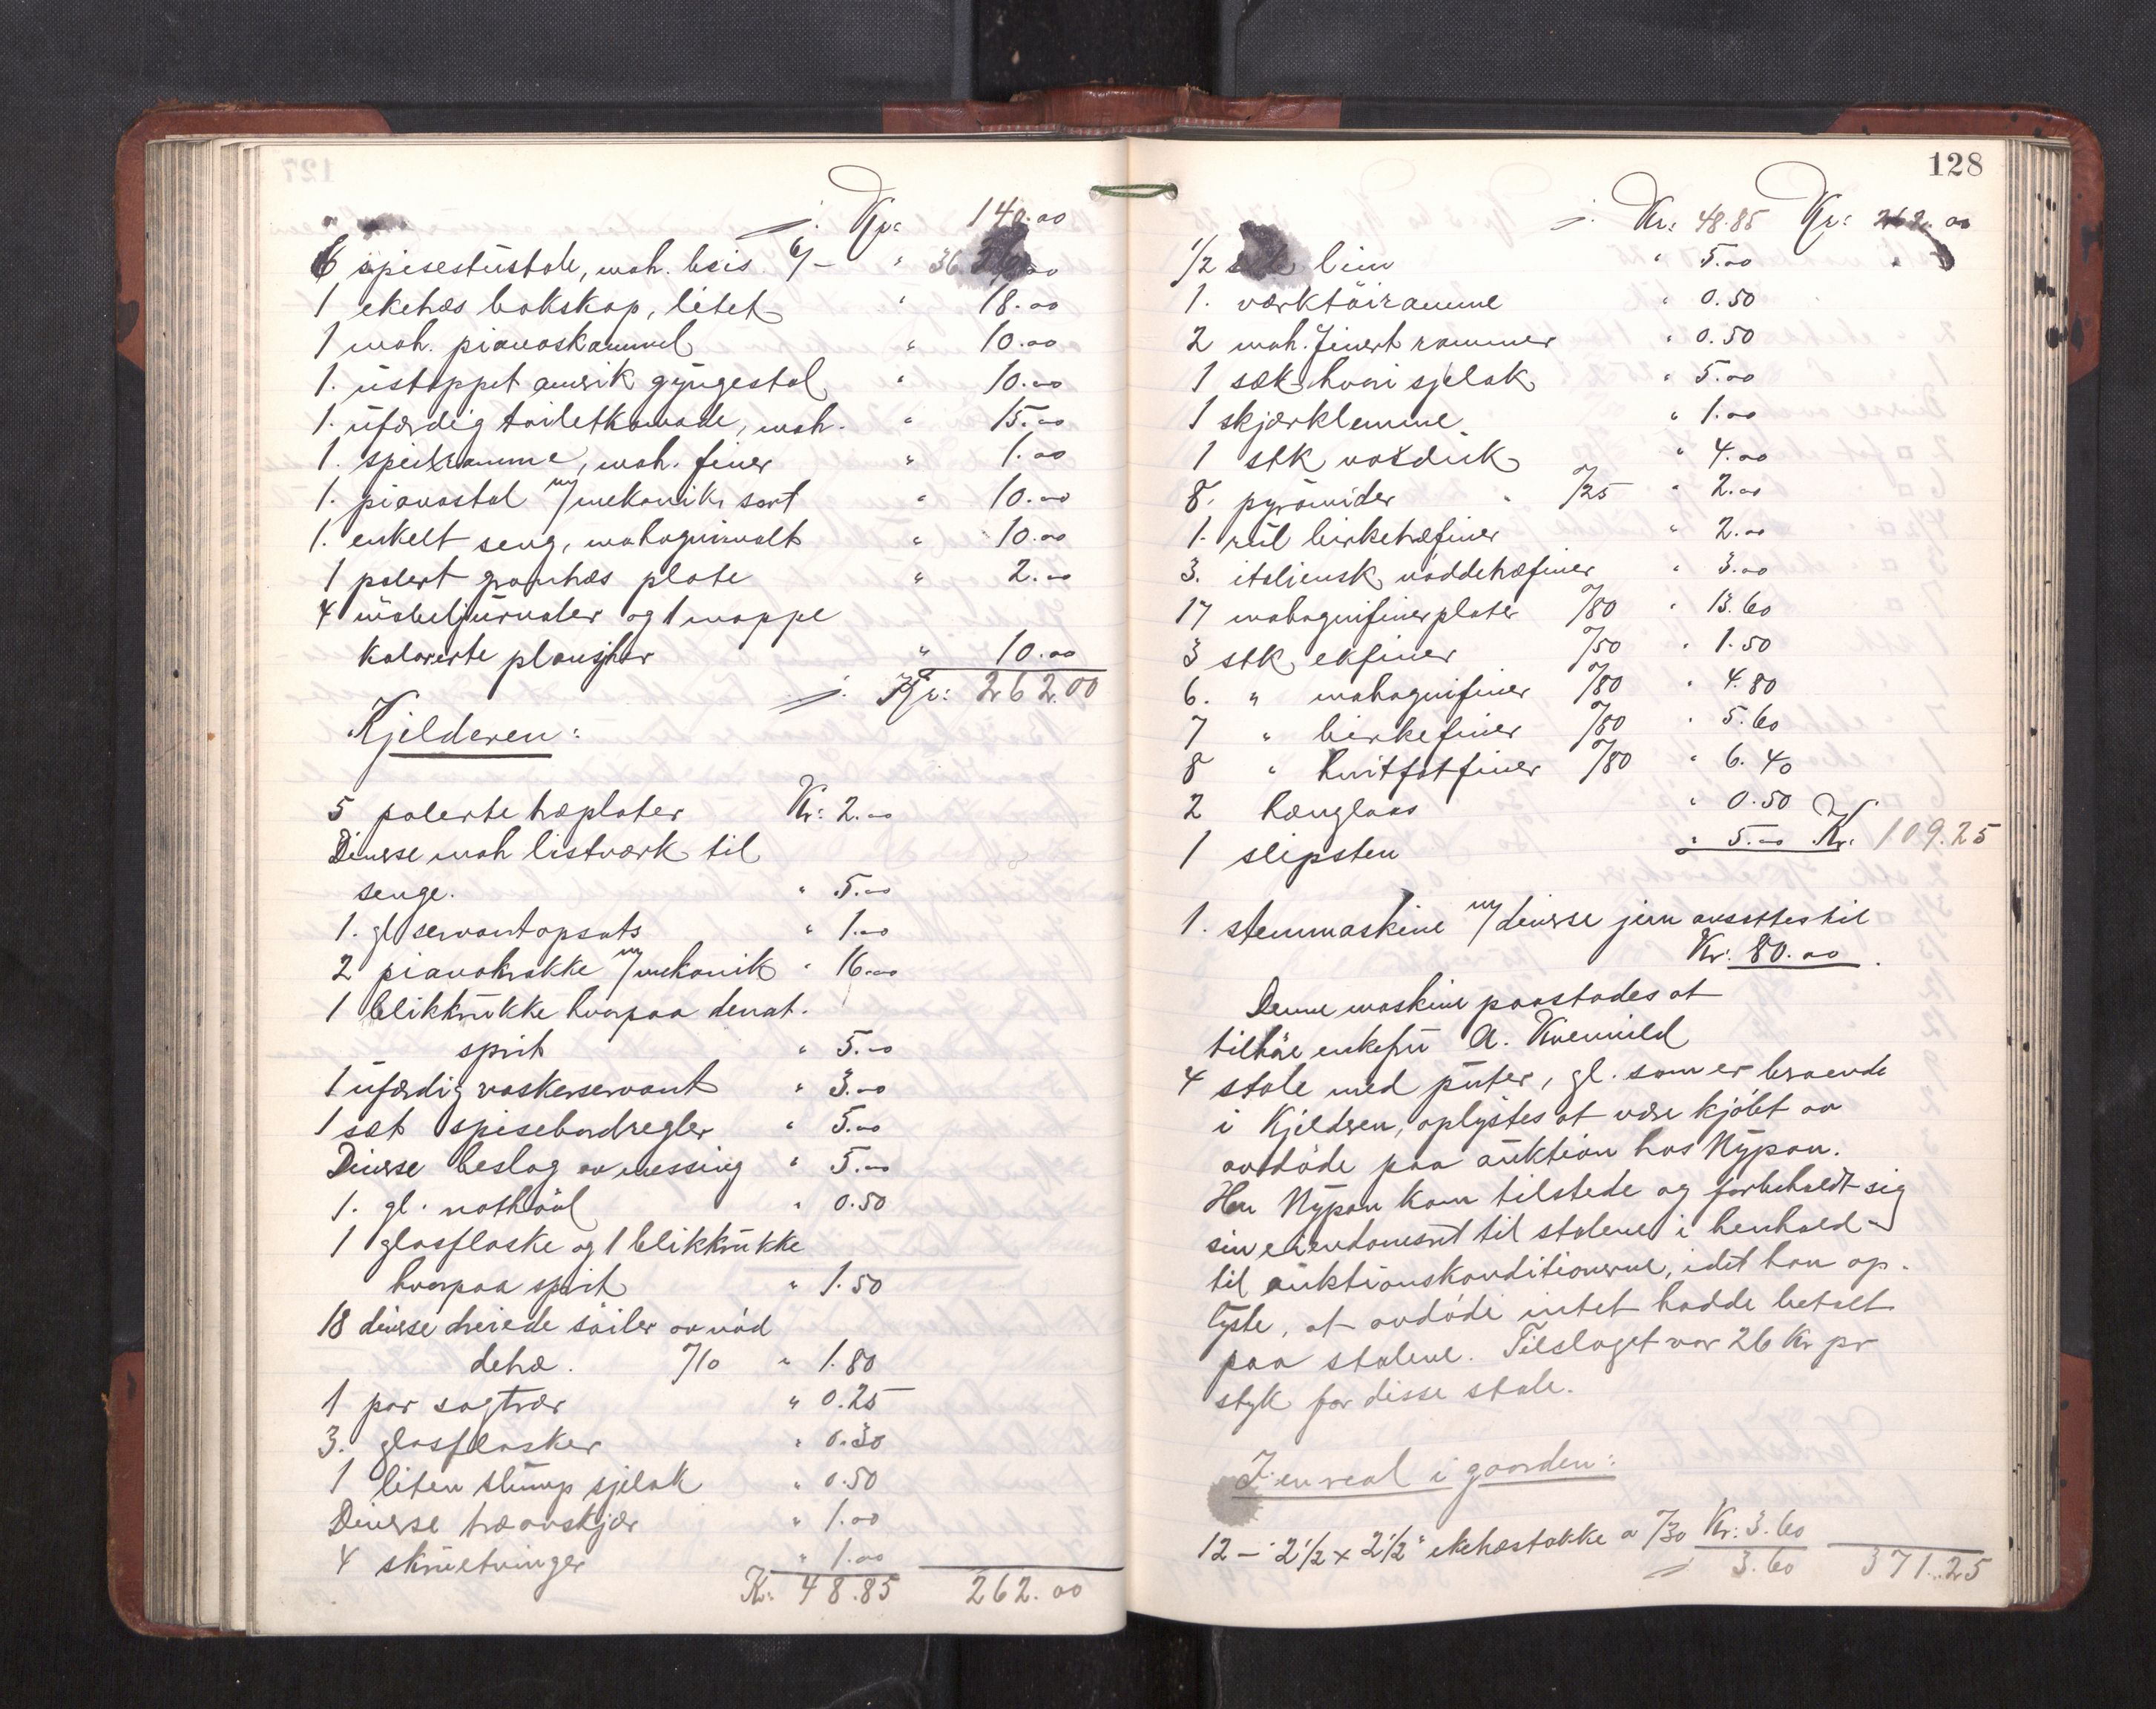 Kr: 140.00
6 spisestustole, mah. beis 6/- " 36.00
1 eketræs bokskap, litet " 18.00
1 mah. pianoskammel " 10.00
1. ustoppet amerik gyngestol " 10.00
1. ufærdig toiletkomode, mah. " 15.00
1. speilramme, mah. finer " 1.00
1. pianostol m/mekanik, sort " 10.00
1. enkelt seng, mahognimalt " 10.00
1 polert grantræs plate " 2.00
4 møbeljurnaler og 1 mappe
kolorerte plansjher " 10.00
Kr: 262.00
Kjelderen:
5 polerte træplater Kr: 2.00
Diverse mah listværk til
senge. " 5.00
1. gl servantopsats " 1.00
2 pianokrakke m/mekanik " 16.00
1 blikkrukke hvorpaa denat.
sprit " 5.00
1 ufærdig vaskeservant " 3.00
1 sæt spisebordregler " 5.00
Diverse beslag av messing " 5.00
1. gl. nothøvl " 0.50
1 glasflaske og 1 blikkrukke
hvorpaa sprit " 1.50
18 diverse dreiede søiler av nød
detræ. /10 " 1.80
1 par sagtrær " 0.25
3. glasflasker " 0.30
1 liten stump sjelak " 0.50
Diverse træavskjær " 1.00
4 skruetvinger " 1.00
Kr: 48.85 262.00
128
Kr: 48.85 Kr: 262.00
1/2 lim " 5.00
1. værktøiramme " 0.50
2 mah. finert rammer " 0.50
1 sæk hvori sjelak " 5.00
1 skjærklemme " 1.00
1 stk voksduk " 4.00
8. pyramider /25 " 2.00
1. rul birketræfiner " 2.00
3. italiensk nøddetræfiner " 3.00
17 mahognifinerplater /80 " 13.60
3 stk ekfiner /50 " 1.50
6. " mahognifiner /80 " 4.80
7 " birkefiner /80 " 5.60
8 " hvitfatfiner /80 " 6.40
2 hænglaas " 0.50
1 slipsten " 5.00 Kr. 109.25
1. stemmaskine m/diverse jern ansættes til
Kr: 80.00.
Denne maskine paastodes at
tilhøre enkefru A. Kvenild
4 stole med puter, gl. som er beroende
i Kjelderen, oplystes at være kjøbt av
avdøde paa auktion hos Nypan.
Hr. Nypan kom tilstede og forbeholdt sig
sin eiendomsret til stolene i henhold
til auktionskonditionerne, idet han op-
lyste, at avdøde intet hadde betalt
paa stolene. Tilslaget var 26 Kr pr
styk for disse stole.
I en real i gaarden:
12 - 2 1/2 x 2 1/2" eketræstokke a /30 Kr: 3.60
3.60 371.25